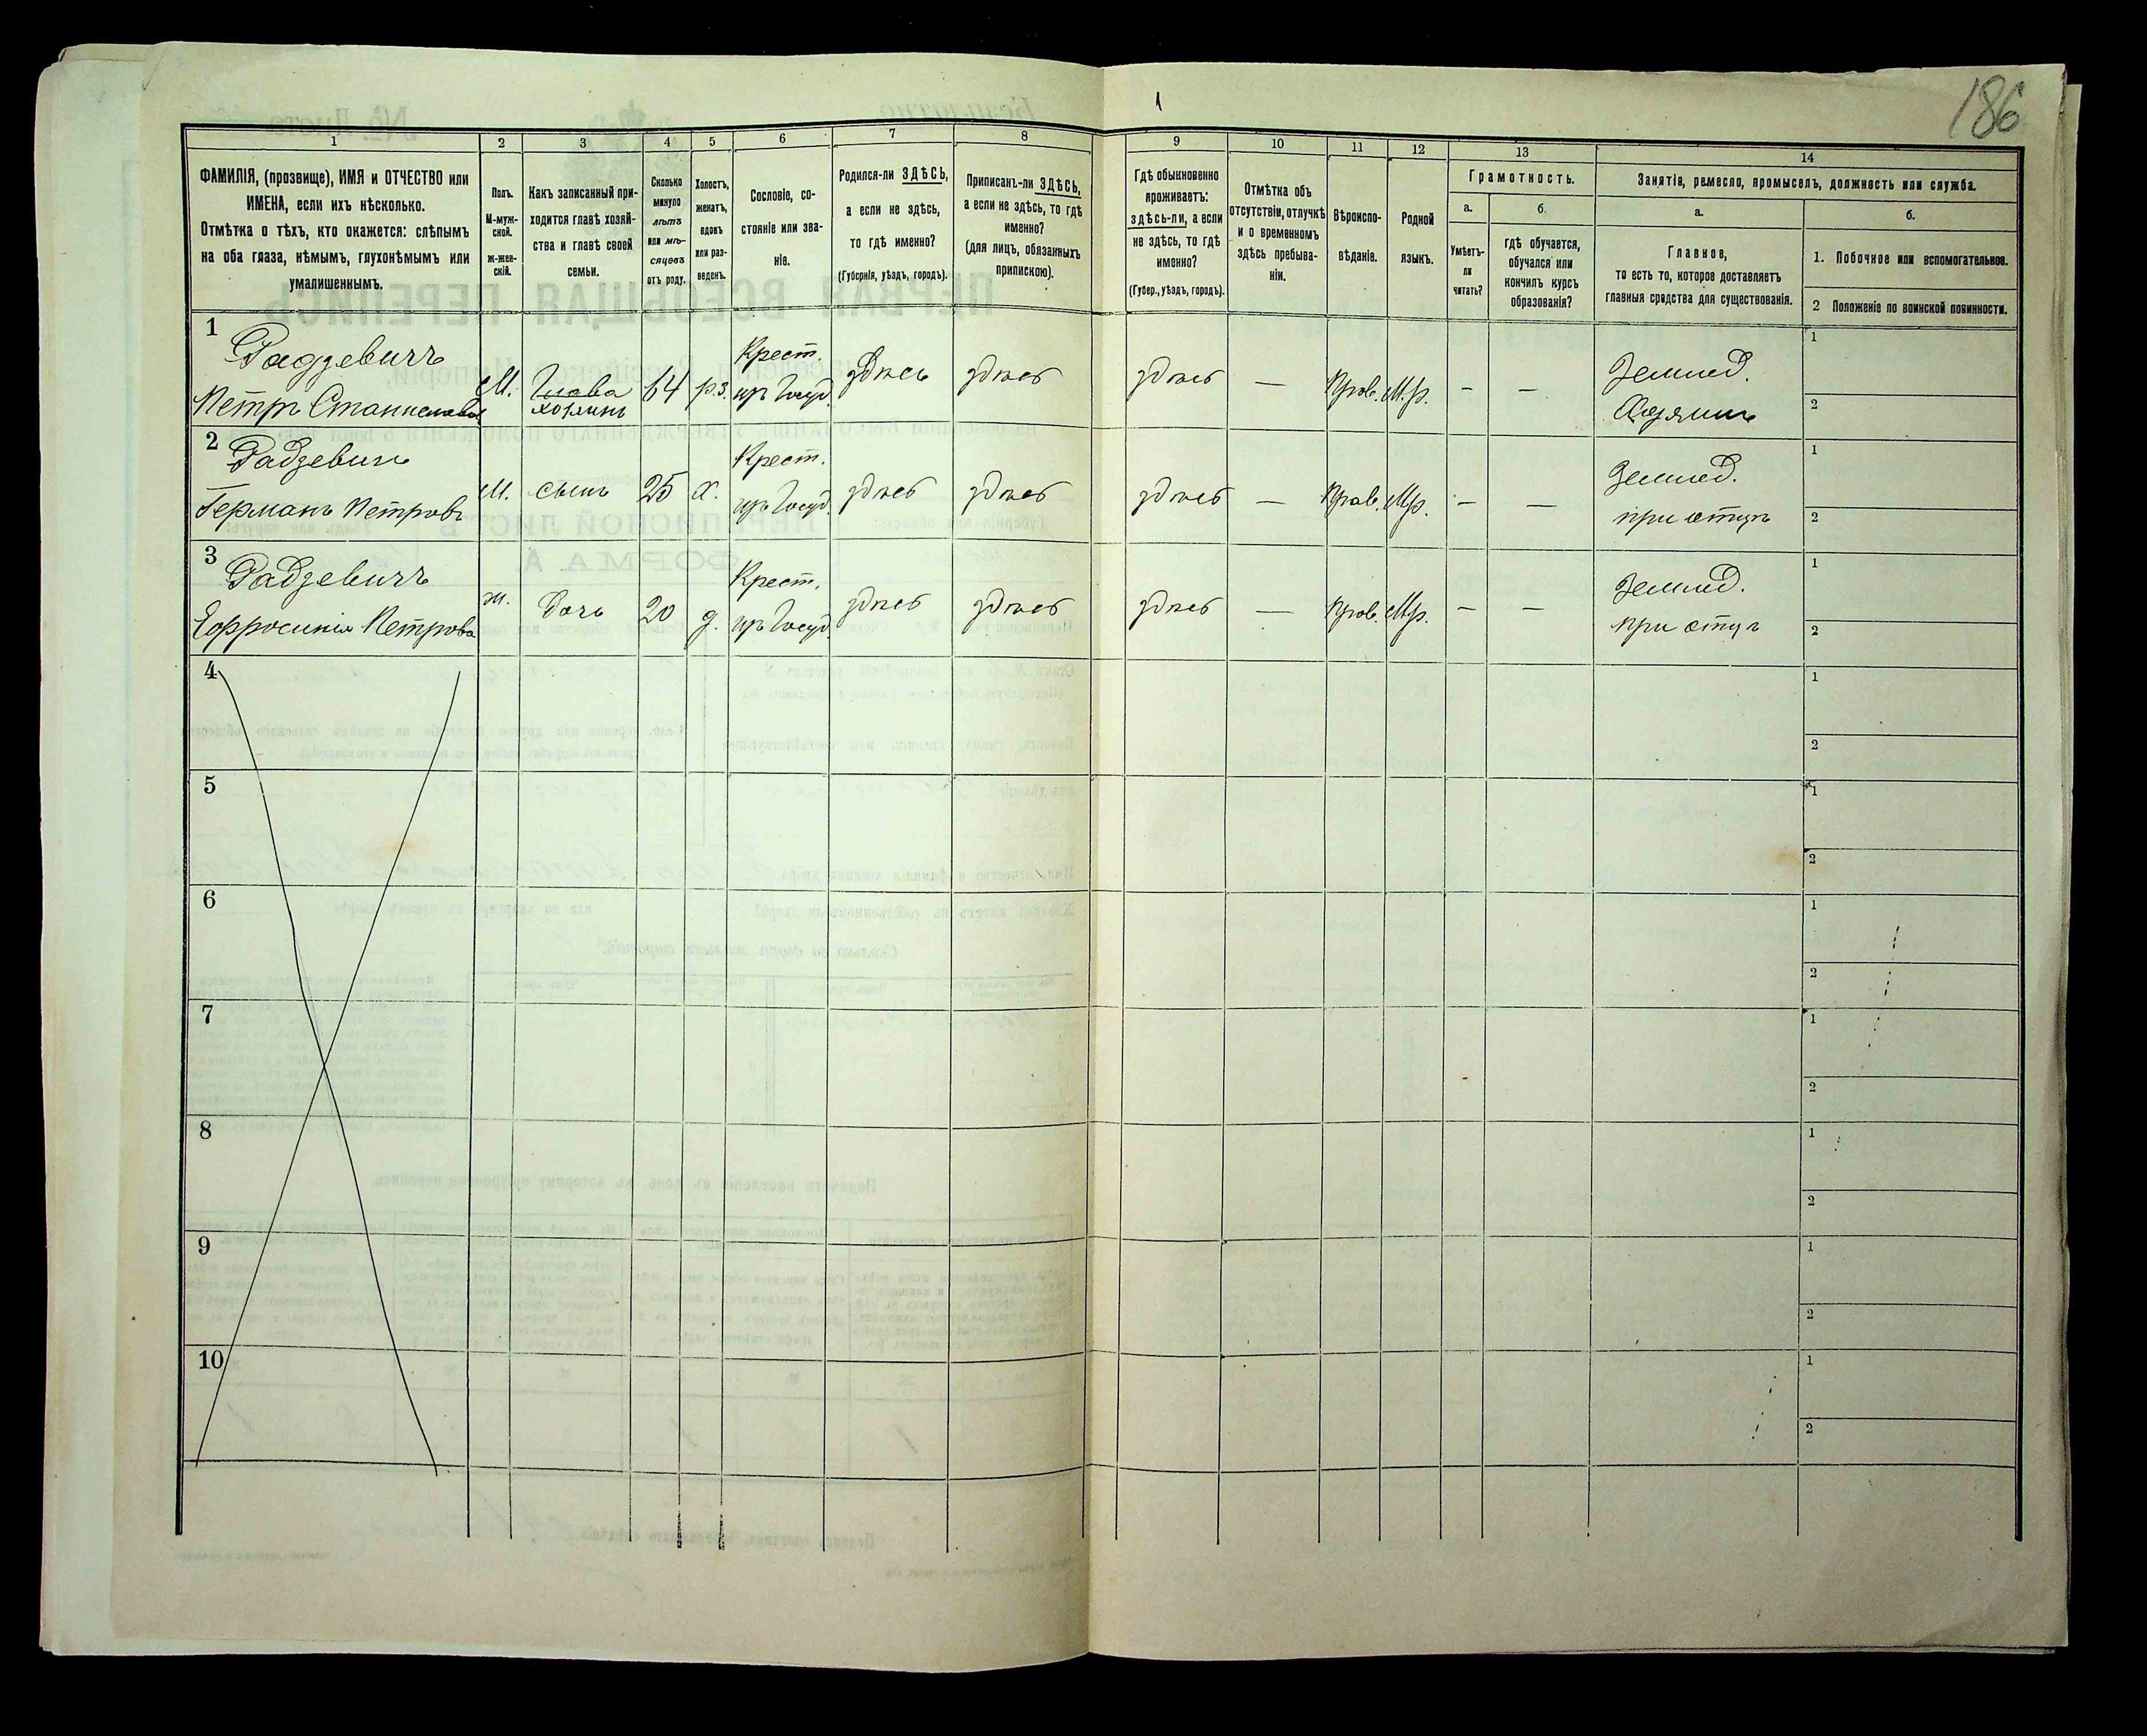 1
186
1
2
3
4
5
6
7
8
9
10
11
12
13
14
ФАМИЛІЯ, (прозвище), ИМЯ и ОТЧЕСТВО или
ИМЕНА, если ихъ нѣсколько.
Отмѣтка о тѣхъ, кто окажется: слѣпымъ
на оба глаза, нѣмымъ, глухонѣмымъ или
умалишеннымъ.
Полъ.
М-муж-
ской.
ж-жен-
скій.
Какъ записанный при-
ходится главѣ хозяй-
ства и главѣ своей
семьи.
Сколько
минуло
лѣтъ
или мѣ-
сяцевъ
отъ роду.
Холостъ,
женатъ,
вдовъ
или раз-
веденъ.
Сословіе, со-
стояніе или зва-
ніе.
Родился-ли ЗДѢСЬ,
а если не здѣсь,
то гдѣ именно?
(Губернія, уѣздъ, городъ).
Приписанъ-ли ЗДѢСЬ,
а если не здѣсь, то гдѣ
именно?
(для лицъ, обязанныхъ
припискою).
Гдѣ обыкновенно
проживаетъ:
здѣсь-ли, а если
не здѣсь, то гдѣ
именно?
(Губер., уѣздъ, городъ).
Отмѣтка объ
отсутствіи, отлучкѣ
и о временномъ
здѣсь пребыва-
ніи.
Вѣроиспо-
вѣданіе.
Родной
языкъ.
Грамотность.
а.
б.
Умѣетъ-
ли
читать?
гдѣ обучается,
обучался или
кончилъ курсъ
образованія?
Занятія, ремесло, промыселъ, должность или служба.
а.
б.
Главное,
то есть то, которое доставляетъ
главныя средства для существованія.
1. Побочное или вспомогательное.
2 Положеніе по воинской повинности.
1
Радзевичъ
Петръ Станиславовъ
М.
Глава
хозяинъ
64
рз.
Крест.
здѣсь
здѣсь
здѣсь
—
Прав.
—
—
Землед.
Хозяинъ
1
2
2
Радзевичъ
Германъ Петровъ
М.
сынъ
25
х.
Крест.
здѣсь
здѣсь
здѣсь
—
Прав.
—
—
Землед.
при отцѣ
1
2
3
Радзевичъ
Ефросинія Петрова
ж.
дочь
20
д.
Крест.
здѣсь
здѣсь
здѣсь
—
Прав.
—
—
Землед.
при отцѣ
1
2
4
1
2
5
1
2
6
1
2
7
1
2
8
1
2
9
1
2
10
1
2